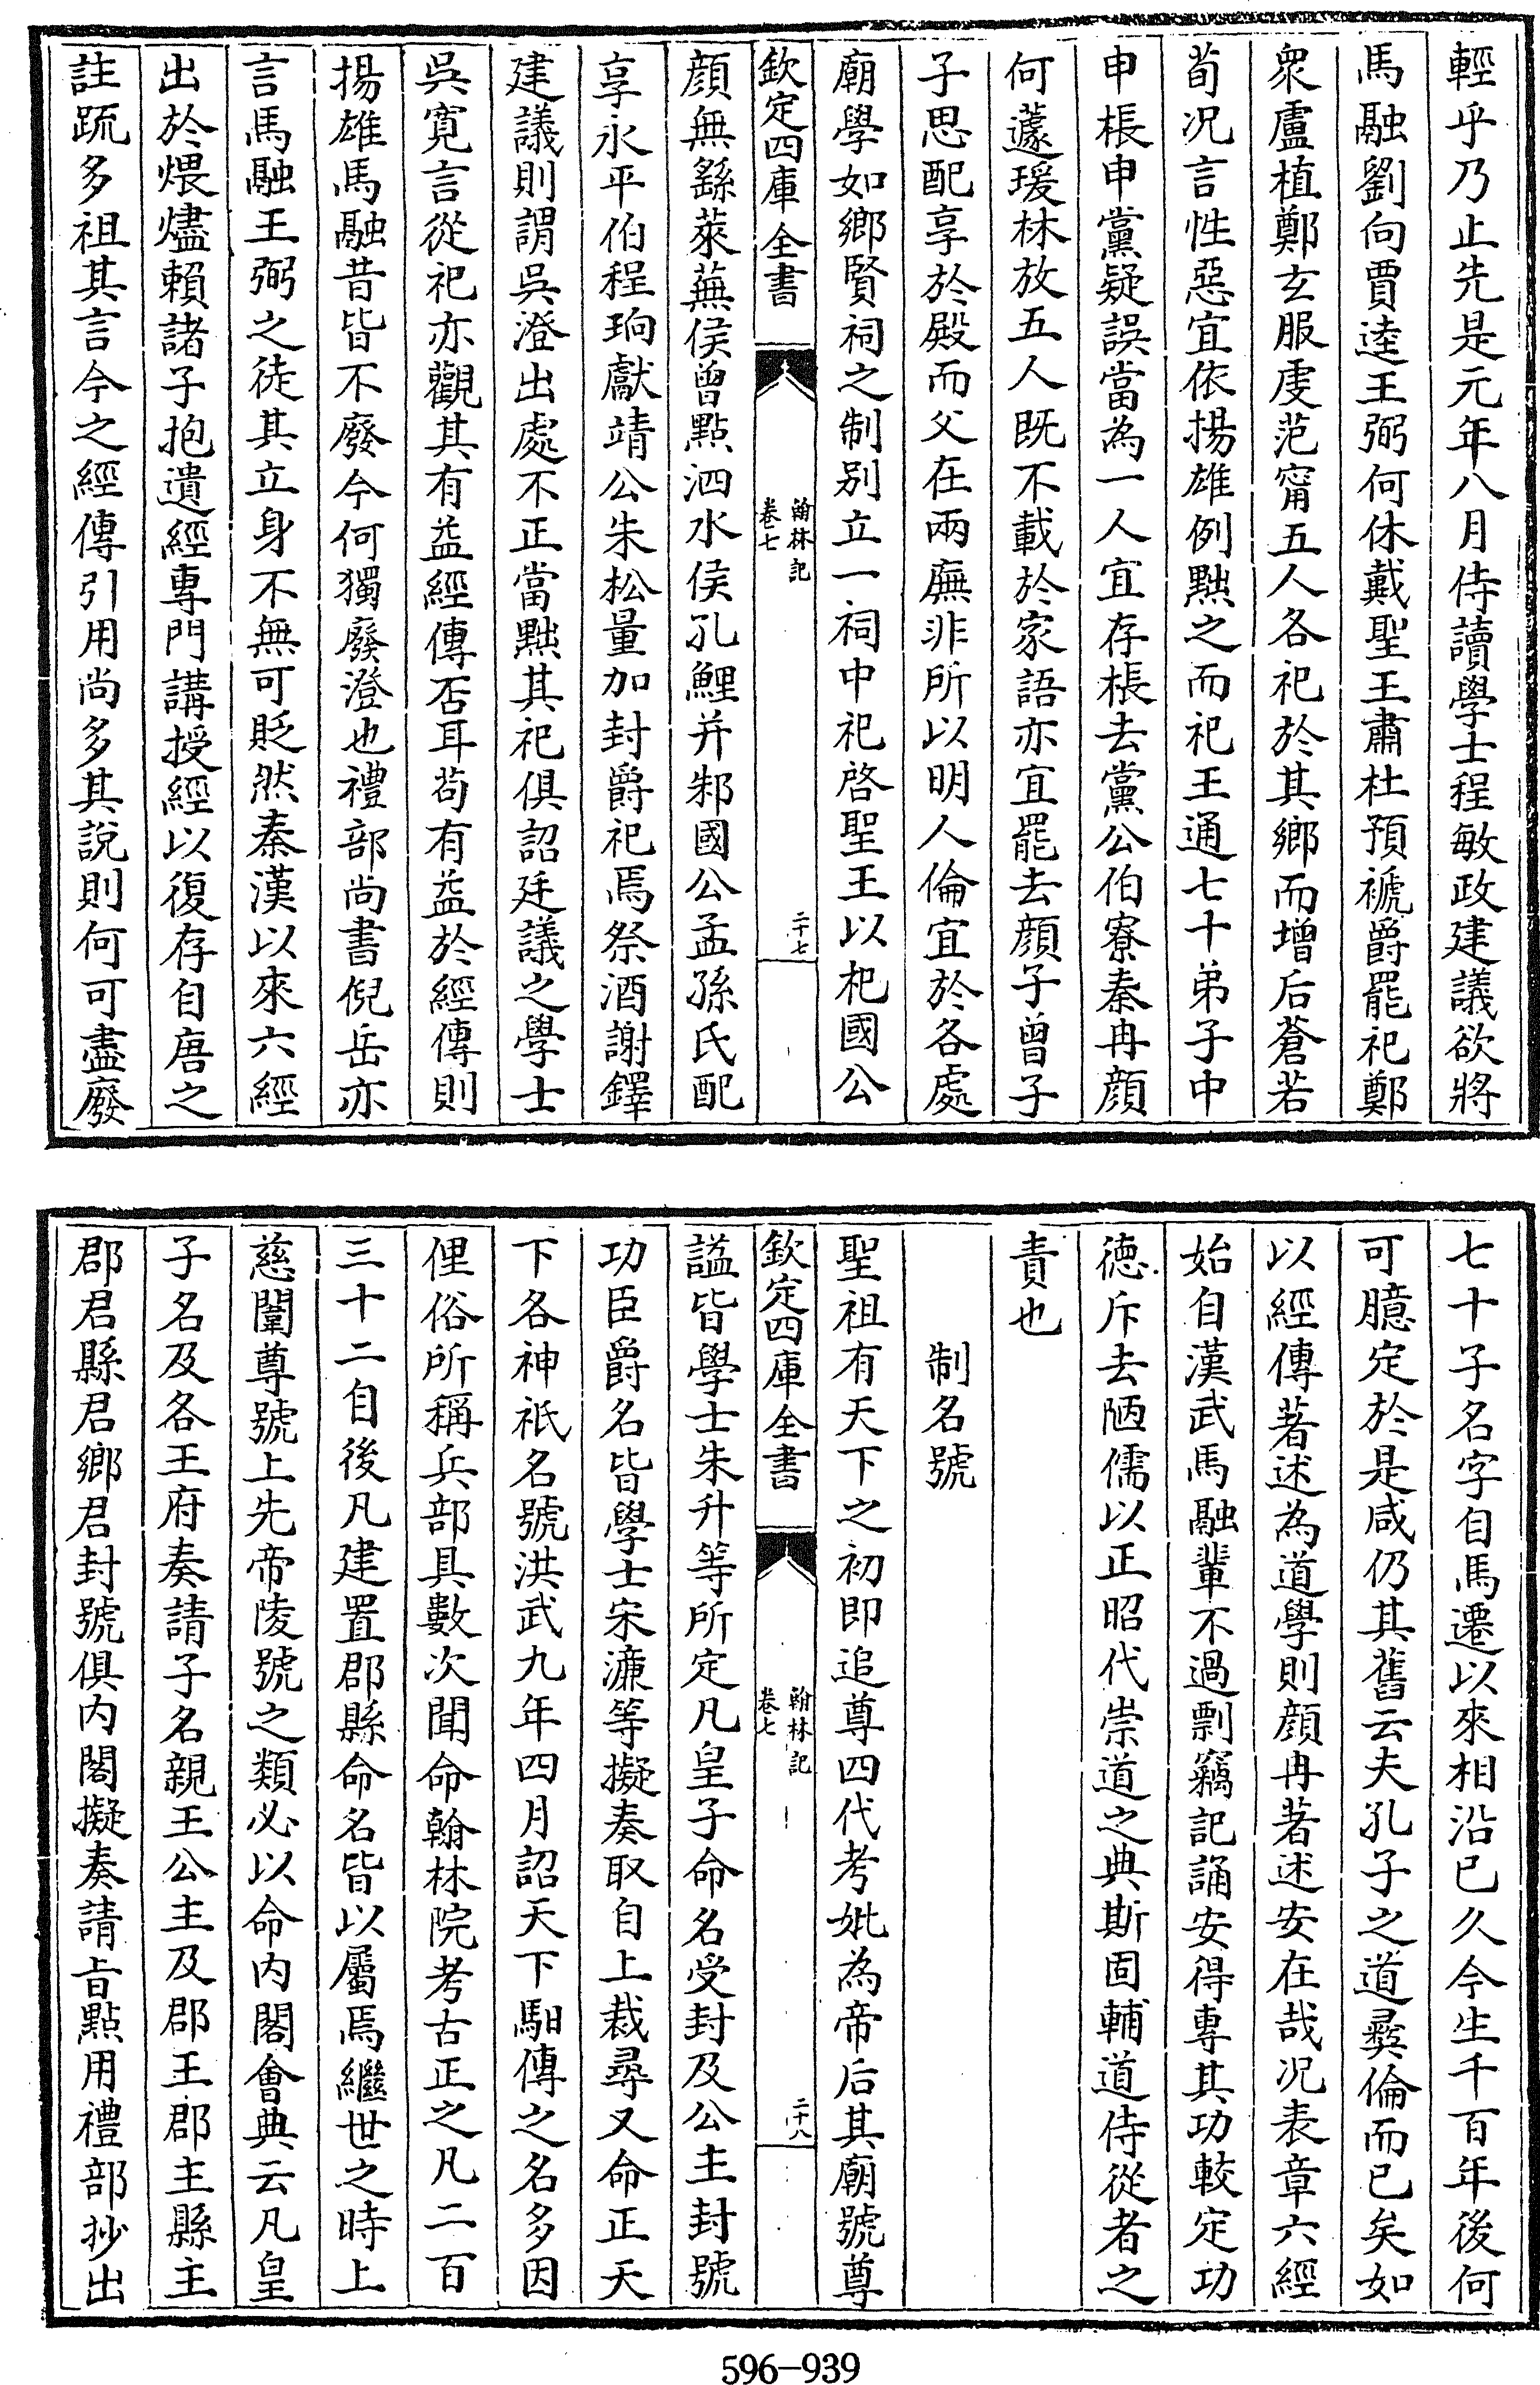 輕乎乃止先是元年八月侍讀學士程敏政建議欲將
馬融劉向賈逵王弼何休戴聖王肅杜預褫爵罷祀鄭
衆盧植鄭玄服虔范甯五人各祀於其鄉而增后蒼若
荀况言性惡宜依揚雄例黜之而祀王通七十弟子中
申棖申黨疑誤當為一人宜存棖去黨公伯寮秦冉顔
何蘧瑗林放五人既不載於家語亦宜罷去顔子曾子
子思配享於殿而父在兩廡非所以明人倫宜於各處
廟學如鄉賢祠之制别立一祠中祀啓聖王以杞國公
欽定四庫全書
翰林記
卷七
二十七
顔無繇萊蕪侯曾點泗水侯孔鯉并邾國公孟孫氏配
享永平伯程珦獻靖公朱松量加封爵祀焉祭酒謝鐸
建議則謂吳澄出處不正當黜其祀俱詔廷議之學士
吳寛言從祀亦觀其有益經傳否耳苟有益於經傳則
揚雄馬融昔皆不廢今何獨廢澄也禮部尚書倪岳亦
言馬融王弼之徒其立身不無可貶然秦漢以來六經
出於煨燼賴諸子抱遺經專門講授經以復存自唐之
註䟽多祖其言今之經傳引用尚多其說則何可盡廢
七十子名字自馬遷以來相沿已久今生千百年後何
可臆定於是咸仍其舊云夫孔子之道彛倫而已矣如
以經傳著述為道學則顔冉著述安在哉况表章六經
始自漢武馬融輩不過剽竊記誦安得專其功較定功
德斥去陋儒以正昭代崇道之典斯固輔道侍從者之
責也
制名號
聖祖有天下之初即追尊四代考妣為帝后其廟號尊
欽定四庫全書
翰林記
卷七
二十八
諡皆學士朱升等所定凡皇子命名受封及公主封號
功臣爵名皆學士宋濂等擬奏取自上裁尋又命正天
下各神祇名號洪武九年四月詔天下馹傳之名多因
俚俗所稱兵部具數次聞命翰林院考古正之凡二百
三十二自後凡建置郡縣命名皆以屬焉繼世之時上
慈闈尊號上先帝陵號之類必以命内閣會典云凡皇
子名及各王府奏請子名親王公主及郡王郡主縣主
郡君縣君鄉君封號俱内閣擬奏請旨點用禮部抄出
596-939